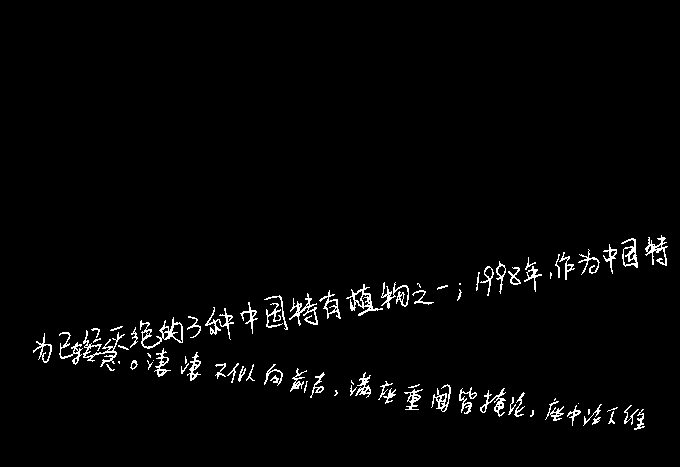 为已经灭绝的3种中国特有植物之一；1998年，作为中国特
转急。凄凄不似向前声，满座重闻皆掩泣，座中泣下谁